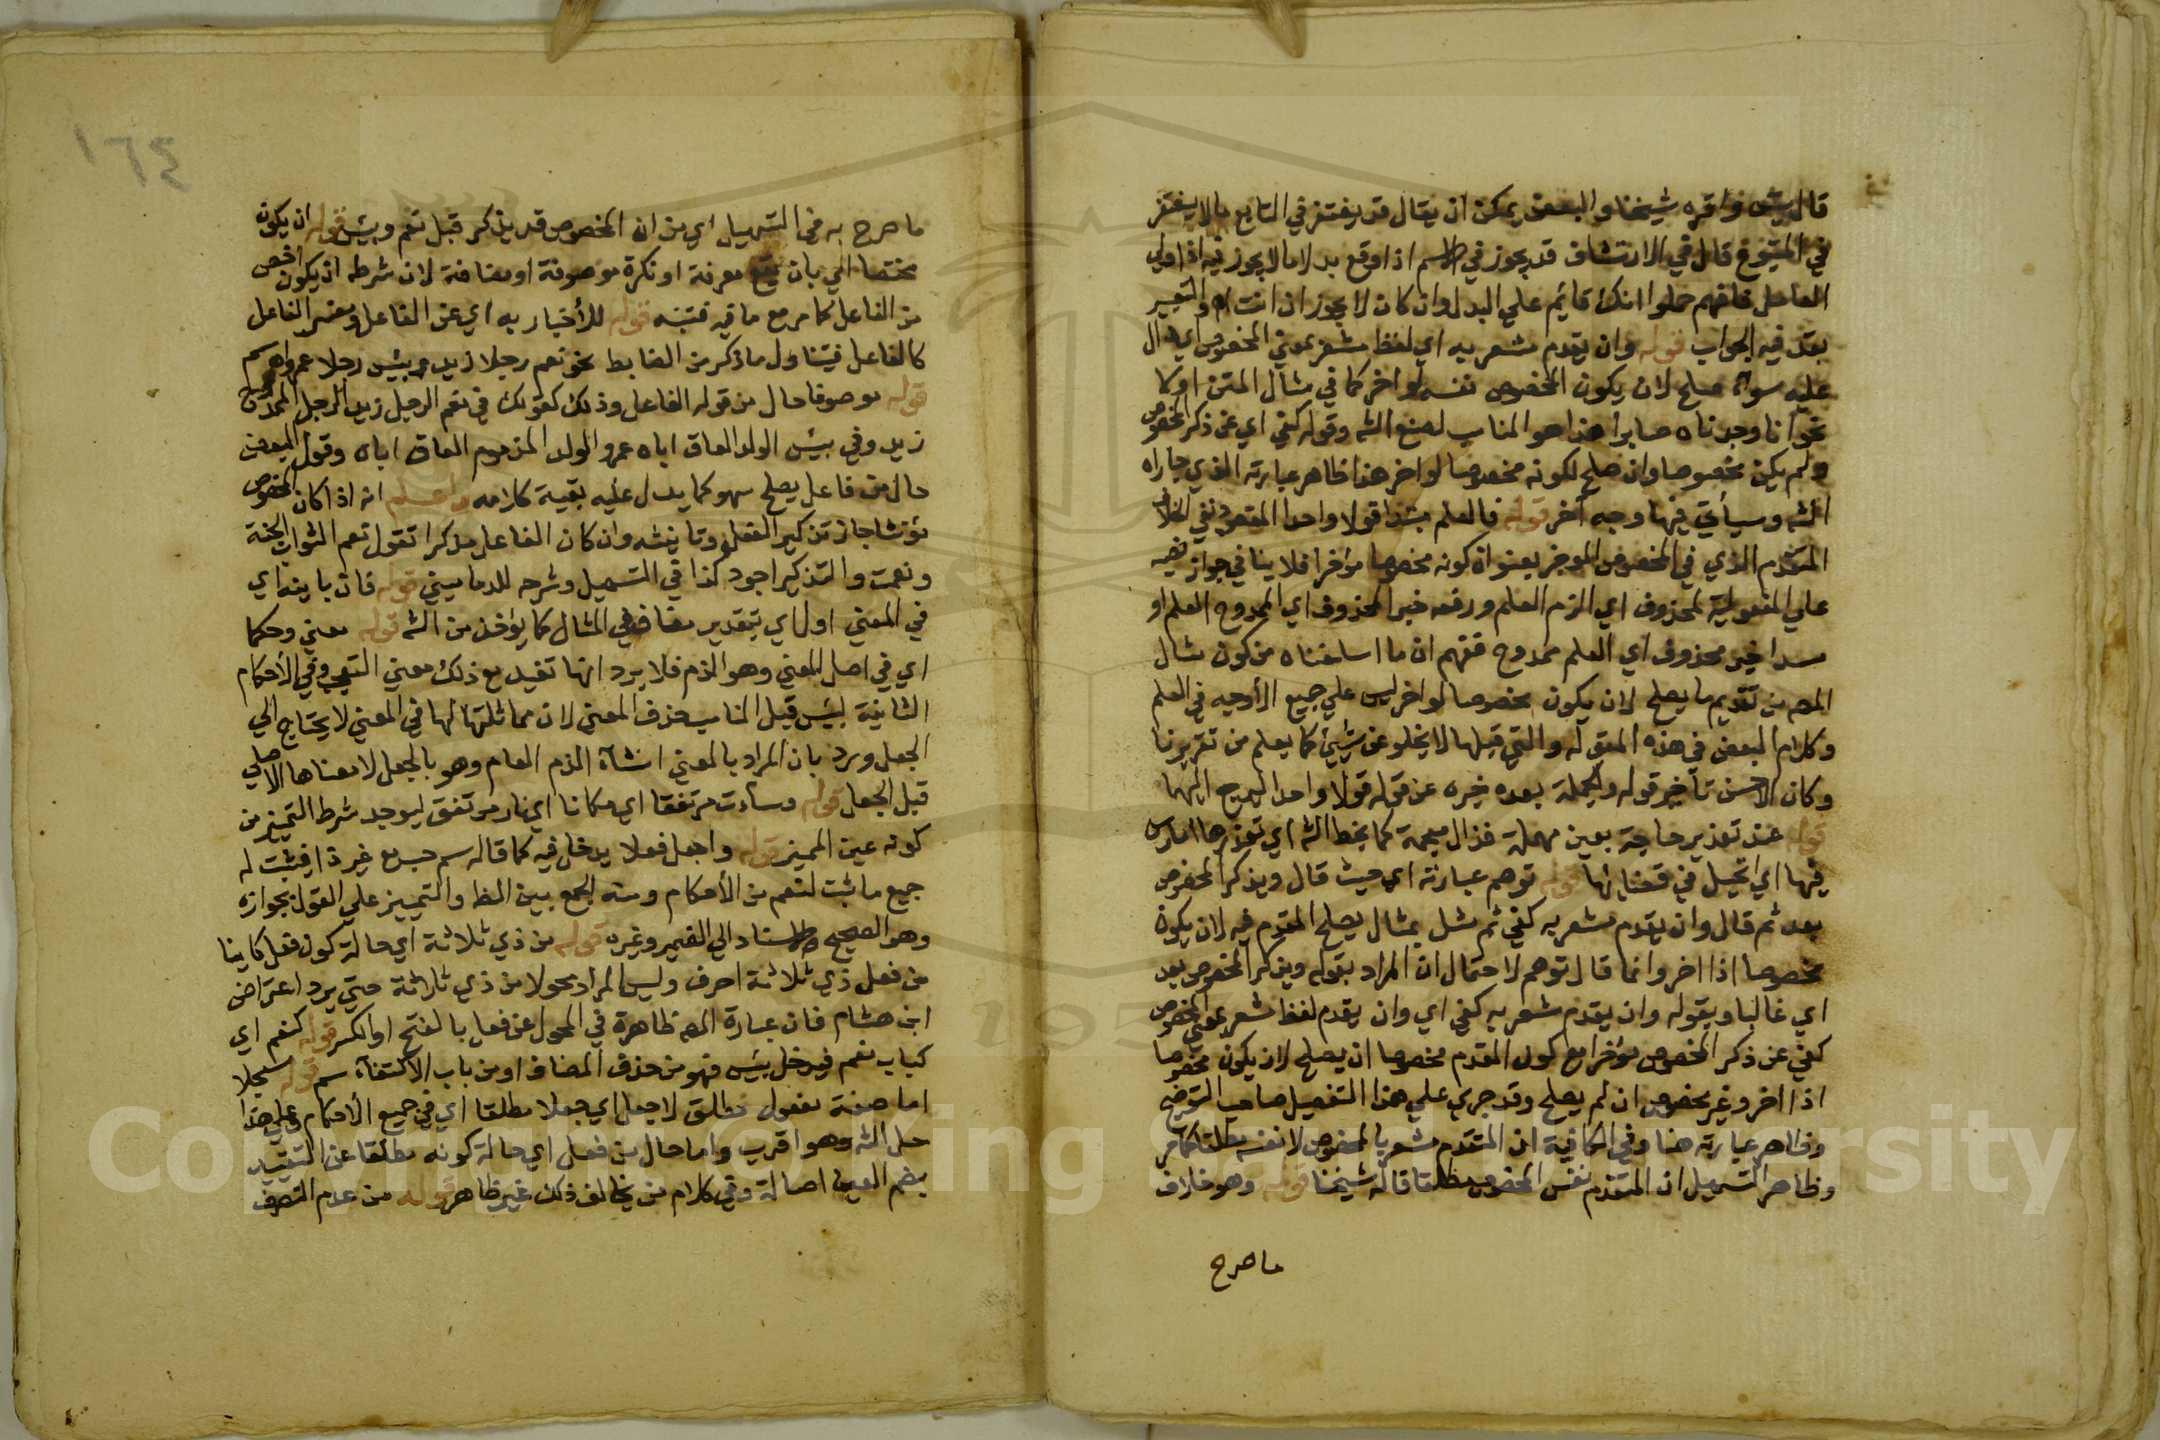 قال يس واقره شيخنا والبعض يمكن ان يقال قد يغتفر في التابع مالا يغتفر
في المتبوع قال في الارتشاف قد يجوز في الاسم اذا وقع بدلا ما لا يجوز فيه اذا ولي
العامل فانهم حملوا انك قائم علي البدل وان كان لا يجوز ان انت اه والتعبير
بقد فيه الجواب قوله وان يقدم مشعر به اي لفظ مشعر بمعني المخصوص اي دال
عليه سواء صلح لان يكون المخصوص نفسه لو اخر كما في مثال المتن او كا
نحو انا وجدناه صابرا هذا هو المناسب لصنع الشه وقوله كفي اي عن ذكر المخصوص
ولم يكن مخصوصا وان صلح لكونه مخصوصا لو اخر هذا ظاهر عبارته الذي جاراه
الشه وسيأتي فيها وجه آخر قوله فالعلم مبتدا قولا واحدا المقصود نفي الخلاف
المتقدم الذي في المخصوص الموخر بعنوان كونه مخصوصا مؤخرا فلا ينافي جواز نصبه
علي المفعولية لمحذوف اي الزم العلم ورفعه خبر المحذوف اي الممدوح العلم او
مبتدا خبره محذوف اي العلم ممدوح ففهم ان ما اسلفناه من كون مثال
المصـ من تقديم ما يصلح لان يكون مخصوصا لو اخر ليس علي جميع الأوجه في العلم
وكلام البعض في هذه القوله والتي قبلها لا يخلو عن شيئ كما يعلم من تقريرنا
وكان الاحسن تأخير قوله والجملة بعده خبره عن قوله قولا واحدا ليرجع اليهما
قوله عند تعذير حاجة بعين مهملة فذال معجمة كما بخط الشه اي تعذرها امارس
فيها اي اتحيل في قضائها قوله توهم عبارته اي حيث قال ويذكر المخصوص
بعد ثم قال وان يقدم مشعر به كفي ثم مثل بمثال يصلح المقدم فيه لان يكون
مخصوصا اذا اخر وانما قال توهم لاحتمال ان المراد بقوله ويذكر المخصوص بعد
اي غالبا وبقوله وان يقدم مشعر به كفي اي وان يقدم لفظ مشعر بمعني المخصوص
كفي عن ذكر المخصوص مؤخرا مع كون المقدم مخصوصا ان يصلح لان يكون مخصوصا
اذا اخر وغير مخصوص ان لم يصلح وقد جري علي هذا التفصيل صاحب التوضيح
وظاهر عبارته هنا وفي الكافية ان المتقدم مشعر بالمخصوص لا نفسه مطلقا كما مر
وظاهر التسهيل ان المتقدم نفس المخصوص مطلقا قاله شيخنا قوله وهو خلاف
ما صرح
١٦٤
ما صرح به في التسهيل اي من ان المخصوص قد يذكر قبل نعم وبئس قوله ان يكون
مختصا اي بان يقع معرفة او نكرة موصوفة او مضافة لان شرطه ان يكون اخص
من الفاعل كما مر مع ما فيه فتنبه قوله للأخبار به اي عن الفاعل ومفسر الفاعل
كالفاعل فيتناول ما ذكر من الضابط نحو نعم رجلا زيد وبئس رجلا عمرو اهـ سم
قوله موصوفا حال من قوله الفاعل وذلك كقولك في نعم الرجل زيد الرجل الممدوح
زيد وفي بئس الولد العاق اباه عمرو الولد المذموم العاق اباه وقول البعض
حال من فاعل يصلح سهو كما يدل عليه بقية كلامه واعلم انه اذا كان المخصوص
مؤنثا جاز تذكير الفعل وتانيثه وان كان الفاعل مذكرا تقول نعم الثواب الجنة
ونعمت والتذكير اجود كذا في التسهيل وشرحه للدماميني قوله فان باينه اي
في المعني اول اي بتقدير مضاف في المثال كما يؤخذ من الشه قوله معني وحكما
اي في اصل المعني وهو الذم فلا يرد انها تفيد مع ذلك معني التعجب وفي الأحكام
الثانية لبئس قيل المناسب حذف المعني لان مماثلتها لها في المعني لا يحتاج الي
الجعل ورد بان المراد بالمعني انشآء الذم العام وهو بالجعل لا معناها الاصلي
قبل الجعل قوله وساءت مرتفقا اي مكانا اي نار مرتفق ليوجد شرط التمييز من
كونه عين المميز قوله واجعل فعلا يدخل فيه كما قاله سم حب مع غير ذا فيثبت له
جميع ما ثبت لنعم من الأحكام ومنه الجمع بين الظا والتمييز علي القول بجوازه
وهو الصحيح والاسناد الي الضمير وغيره قوله من ذي ثلاثة اي حالة كون فعل كاينا
من فعل ذي ثلاثة احرف وليس المراد محولا من ذي ثلاثة حتي يرد اعتراض
ابن هشام فان عبارة المصـ ظاهرة في المحول عن فعل بالفتح او الكسر قوله كنعم اي
كباب نعم فيدخل بئس فهو من حذف المضاف او من باب الاكتفاء سم قوله مسجلا
اما صفة مفعول مطلق لا جعل اي جعلا مطلقا اي في جميع الأحكام وعلي هذا
حل الشه وهو اقرب واما حال من فعل اي حالة كونه مطلقا عن التقييد
بضم العين اصالة وفي كلام من يخالف ذلك غير ظاهر قوله من عدم التصرف